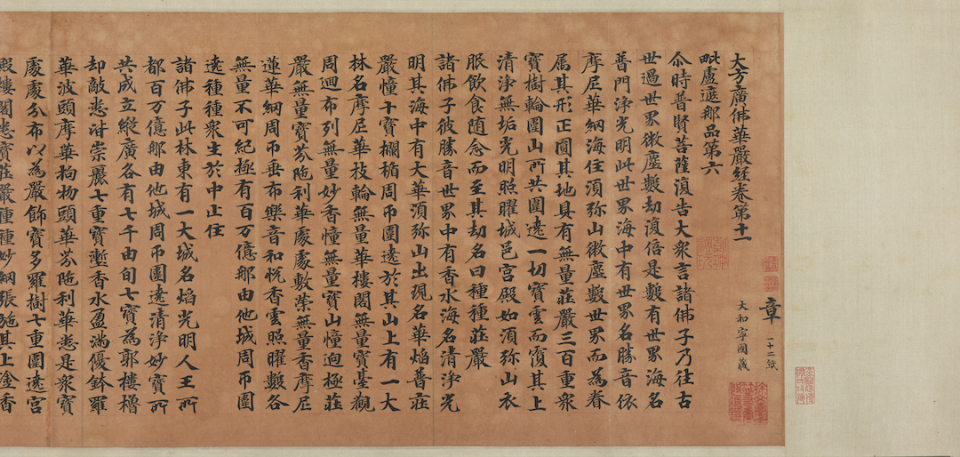 章
一十二紙
大和寧國藏
大方廣佛華嚴經卷第十一
毗盧遮那品第六
尒時普賢菩薩復告大衆言諸佛子乃往古
世過世界微塵數劫復倍是數有世界海名
普門淨光明此世界海中有世界名勝音依
摩尼華網海住須弥山微塵數世界而為眷
属其形正圓其地具有無量莊嚴三百重衆
寶樹輪圍山所共圍遶一切寶雲而覆其上
清淨無垢光明照曜城邑宮殿如須弥山衣
服飲食随念而至其劫名曰種種莊嚴
諸佛子彼勝音世界中有香水海名清淨光
明其海中有大華須弥山出現名華焰普莊
嚴幢十寶欄楯周帀圍遶於其山上有一大
林名摩尼華枝輪無量華樓閣無量寶臺觀
周迴布列無量妙香幢無量寶山幢逈極莊
嚴無量寶芬陁利華處處敷榮無量香摩尼
蓮華網周帀垂布樂音和恱香雲照曜數各
無量不可紀極有百万億那由他城周帀圍
遶種種衆生於中止住
諸佛子此林東有一大城名焰光明人王所
都百万億那由他城周帀圍遶清淨妙寶所
共成立縱廣各有七千由旬七寶為郭樓櫓
却敵悉皆崇麗七重寶塹香水盈滿優鉢羅
華波頭摩華拘物頭華芬陁利華悉是衆寶
處處分布以為嚴飾寶多羅樹七重圍遶宮
殿樓閣悉寶莊嚴種種妙網張施其上塗香